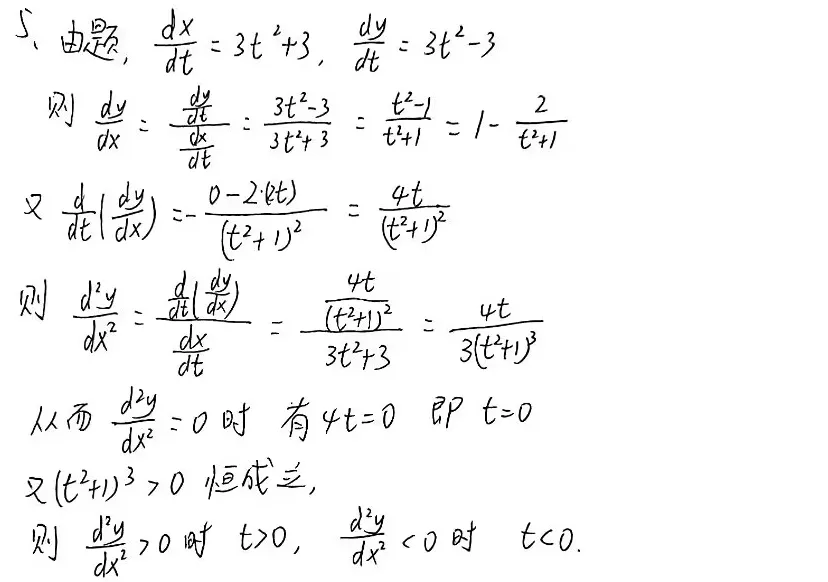 5、由题, dx/dt = 3t²+3, dy/dt = 3t²-3
则 dy/dx = (dy/dt)/(dx/dt) = (3t²-3)/(3t²+3) = (t²-1)/(t²+1) = 1 - 2/(t²+1)
又 d/dt(dy/dx) = - (0-2·(2t))/(t²+1)² = 4t/(t²+1)²
则 d²y/dx² = (d/dt(dy/dx))/(dx/dt) = (4t/(t²+1)²)/(3t²+3) = 4t/(3(t²+1)³)
从而 d²y/dx² = 0 时 有 4t=0 即 t=0
又 (t²+1)³ > 0 恒成立,
则 d²y/dx² > 0 时 t>0, d²y/dx² < 0 时 t<0.